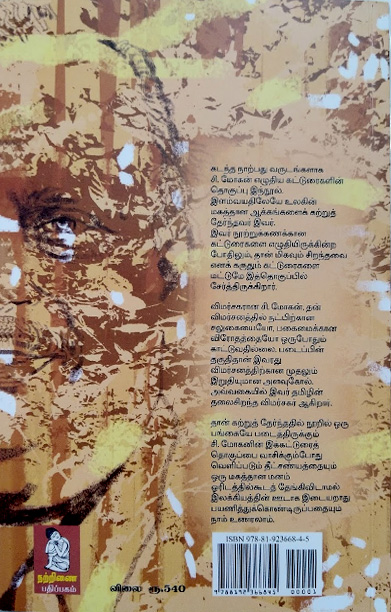 கடந்த நாற்பது வருடங்களாக
சி. மோகன் எழுதிய கட்டுரைகளின்
தொகுப்பு இந்நூல்.
இளம்வயதிலேயே உலகின்
மகத்தான ஆக்கங்களைக் கற்றுத்
தேர்ந்தவர் இவர்.
இவர் நூற்றுக்கணக்கான
கட்டுரைகளை எழுதியிருக்கின்ற
போதிலும், தான் மிகவும் சிறந்தவை
எனக் கருதும் கட்டுரைகளை
மட்டுமே இத்தொகுப்பில்
சேர்த்திருக்கிறார்.
விமர்சகரான சி. மோகன், தன்
விமர்சனத்தில் நட்பிற்கான
சலுகையையோ, பகைமைக்கான
விரோதத்தையோ ஒருபோதும்
காட்டுவதில்லை. படைப்பின்
தகுதிதான் இவரது
விமர்சனத்திற்கான முதலும்
இறுதியுமான அளவுகோல்.
அவ்வகையில் இவர் தமிழின்
தலைசிறந்த விமர்சகர் ஆகிறார்.
தான் கற்றுத் தேர்ந்ததில் நூறில் ஒரு
பங்கையே படைத்திருக்கும்
சி. மோகனின் இக்கட்டுரைத்
தொகுப்பை வாசிக்கும்போது
வெளிப்படும் தீட்சண்யத்தையும்
ஒரு மகத்தான மனம்
ஓரிடத்தில்கூடத் தேங்கிவிடாமல்
இலக்கியத்தின் ஊடாக இடையறாது
பயணித்துக்கொண்டிருப்பதையும்
நாம் உணரலாம்.
நற்றிணை
பதிப்பகம்
விலை ரூ.540
ISBN 978-81-923668-4-5
9 788192 366845 00001